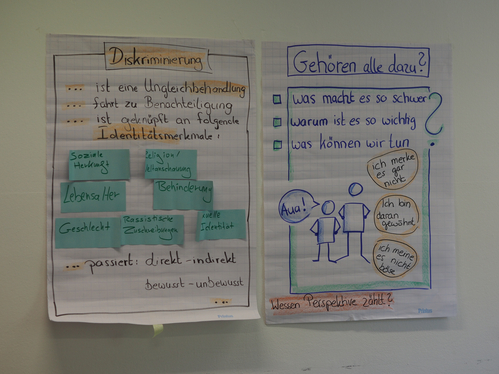 Diskriminierung
... ist eine Ungleichbehandlung
... führt zu Benachteiligung
... ist geknüpft an folgende
Identitätsmerkmale:
Soziale
Herkunft
Religion/
Lebensalter
Behinderung
Geschlecht
Rassistische
Zuschreibungen
Identität
... passiert: direkt - indirekt
bewusst - unbewusst
...
Gehören alle dazu?
was macht es so schwer
warum ist es so wichtig
was können wir tun
?
ich merke
es gar
nicht
Aua!
Ich bin
daran
gewöhnt
ich meine
es nicht
böse
Wessen Perspektive zählt?